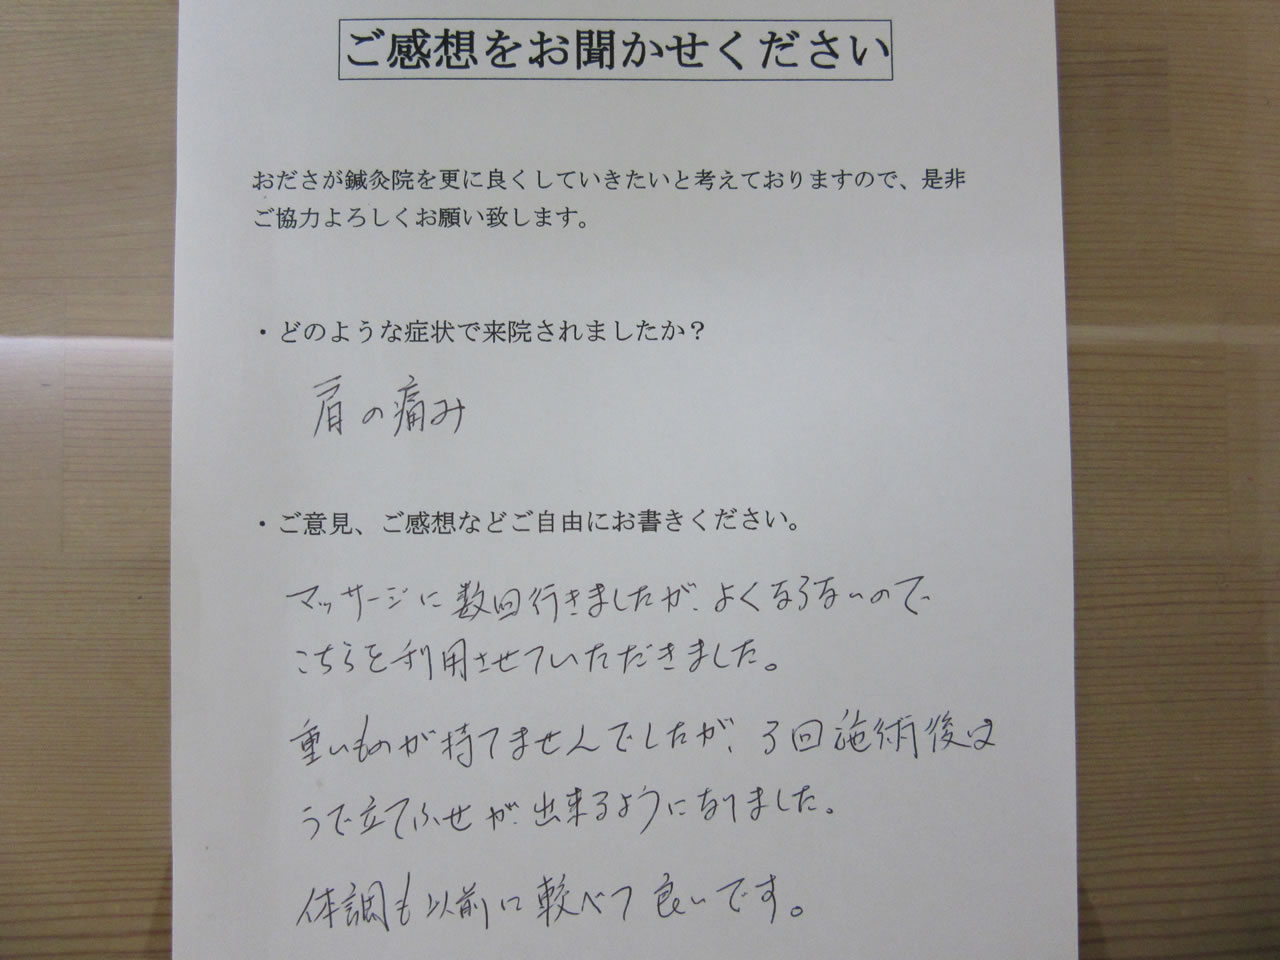 ご感想をお聞かせください
おださが鍼灸院を更に良くしていきたいと考えておりますので、是非
ご協力よろしくお願い致します。
・どのような症状で来院されましたか？
肩の痛み
・ご意見、ご感想などご自由にお書きください。
マッサージに数回行きましたが、よくならないので、
こちらを利用させていただきました。
重いものが持てませんでしたが、3回施術後は
うで立てふせが出来るようになりました。
体調も以前に較べて良いです。